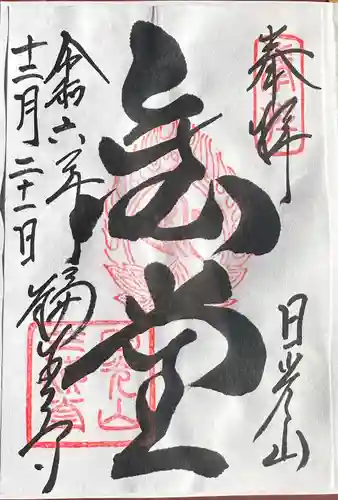 奉拝
日光山
金堂
令和六年
十二月二十一日
輪王寺